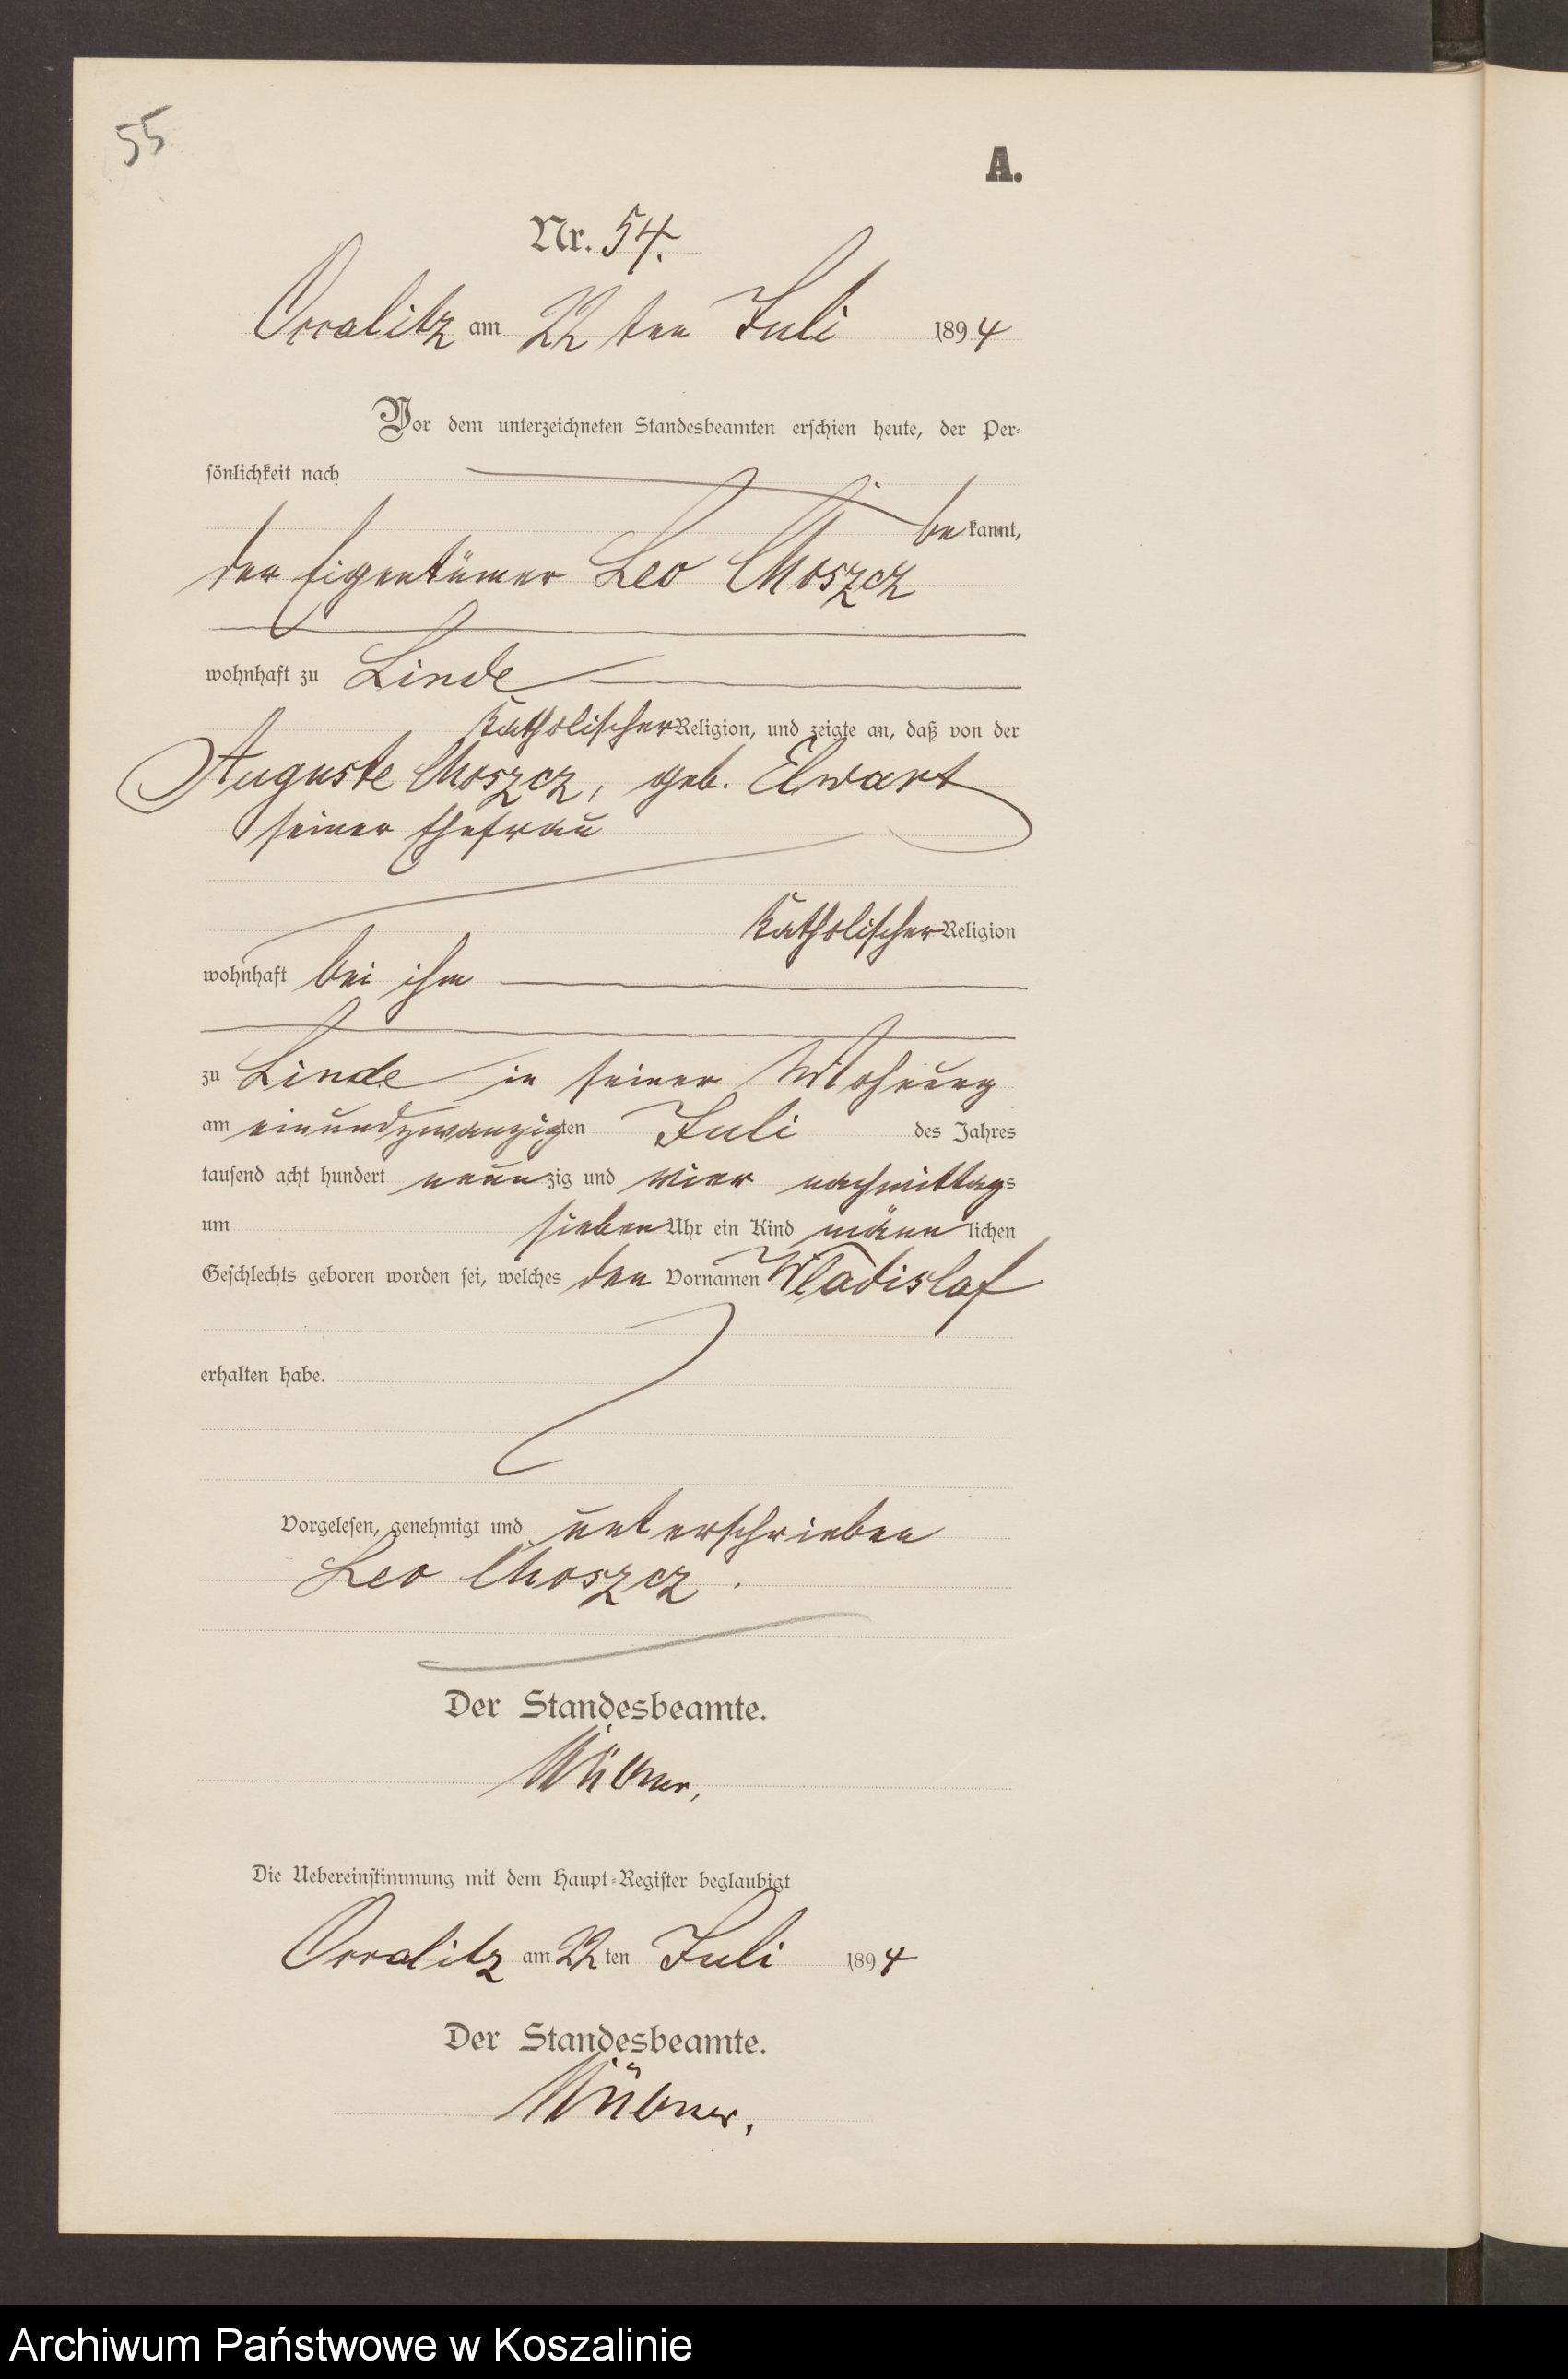 55
A.
Nr. 54.
am 22 ten Juli 1894
Vor dem unterzeichneten Standesbeamten erschien heute, der Per-
sönlichkeit nach
bekannt,
der Eigentümer Leo Choszcz
wohnhaft zu Linde
katholischer Religion, und zeigte an, daß von der
Auguste Choszcz, geb. Elwart
seiner Ehefrau
katholischer Religion
wohnhaft bei ihm
zu Linde in seiner Wohnung
am einundzwanzigten Juli des Jahres
tausend acht hundert neunzig und vier nachmittags
um sieben Uhr ein Kind männlichen
Geschlechts geboren worden sei, welches den Vornamen Wladislaf
erhalten habe.
Vorgelesen, genehmigt und unterschrieben
Leo Choszcz.
Der Standesbeamte.
Die Uebereinstimmung mit dem Haupt-Register beglaubigt
am 22 ten Juli 1894
Der Standesbeamte.
Archiwum Państwowe w Koszalinie